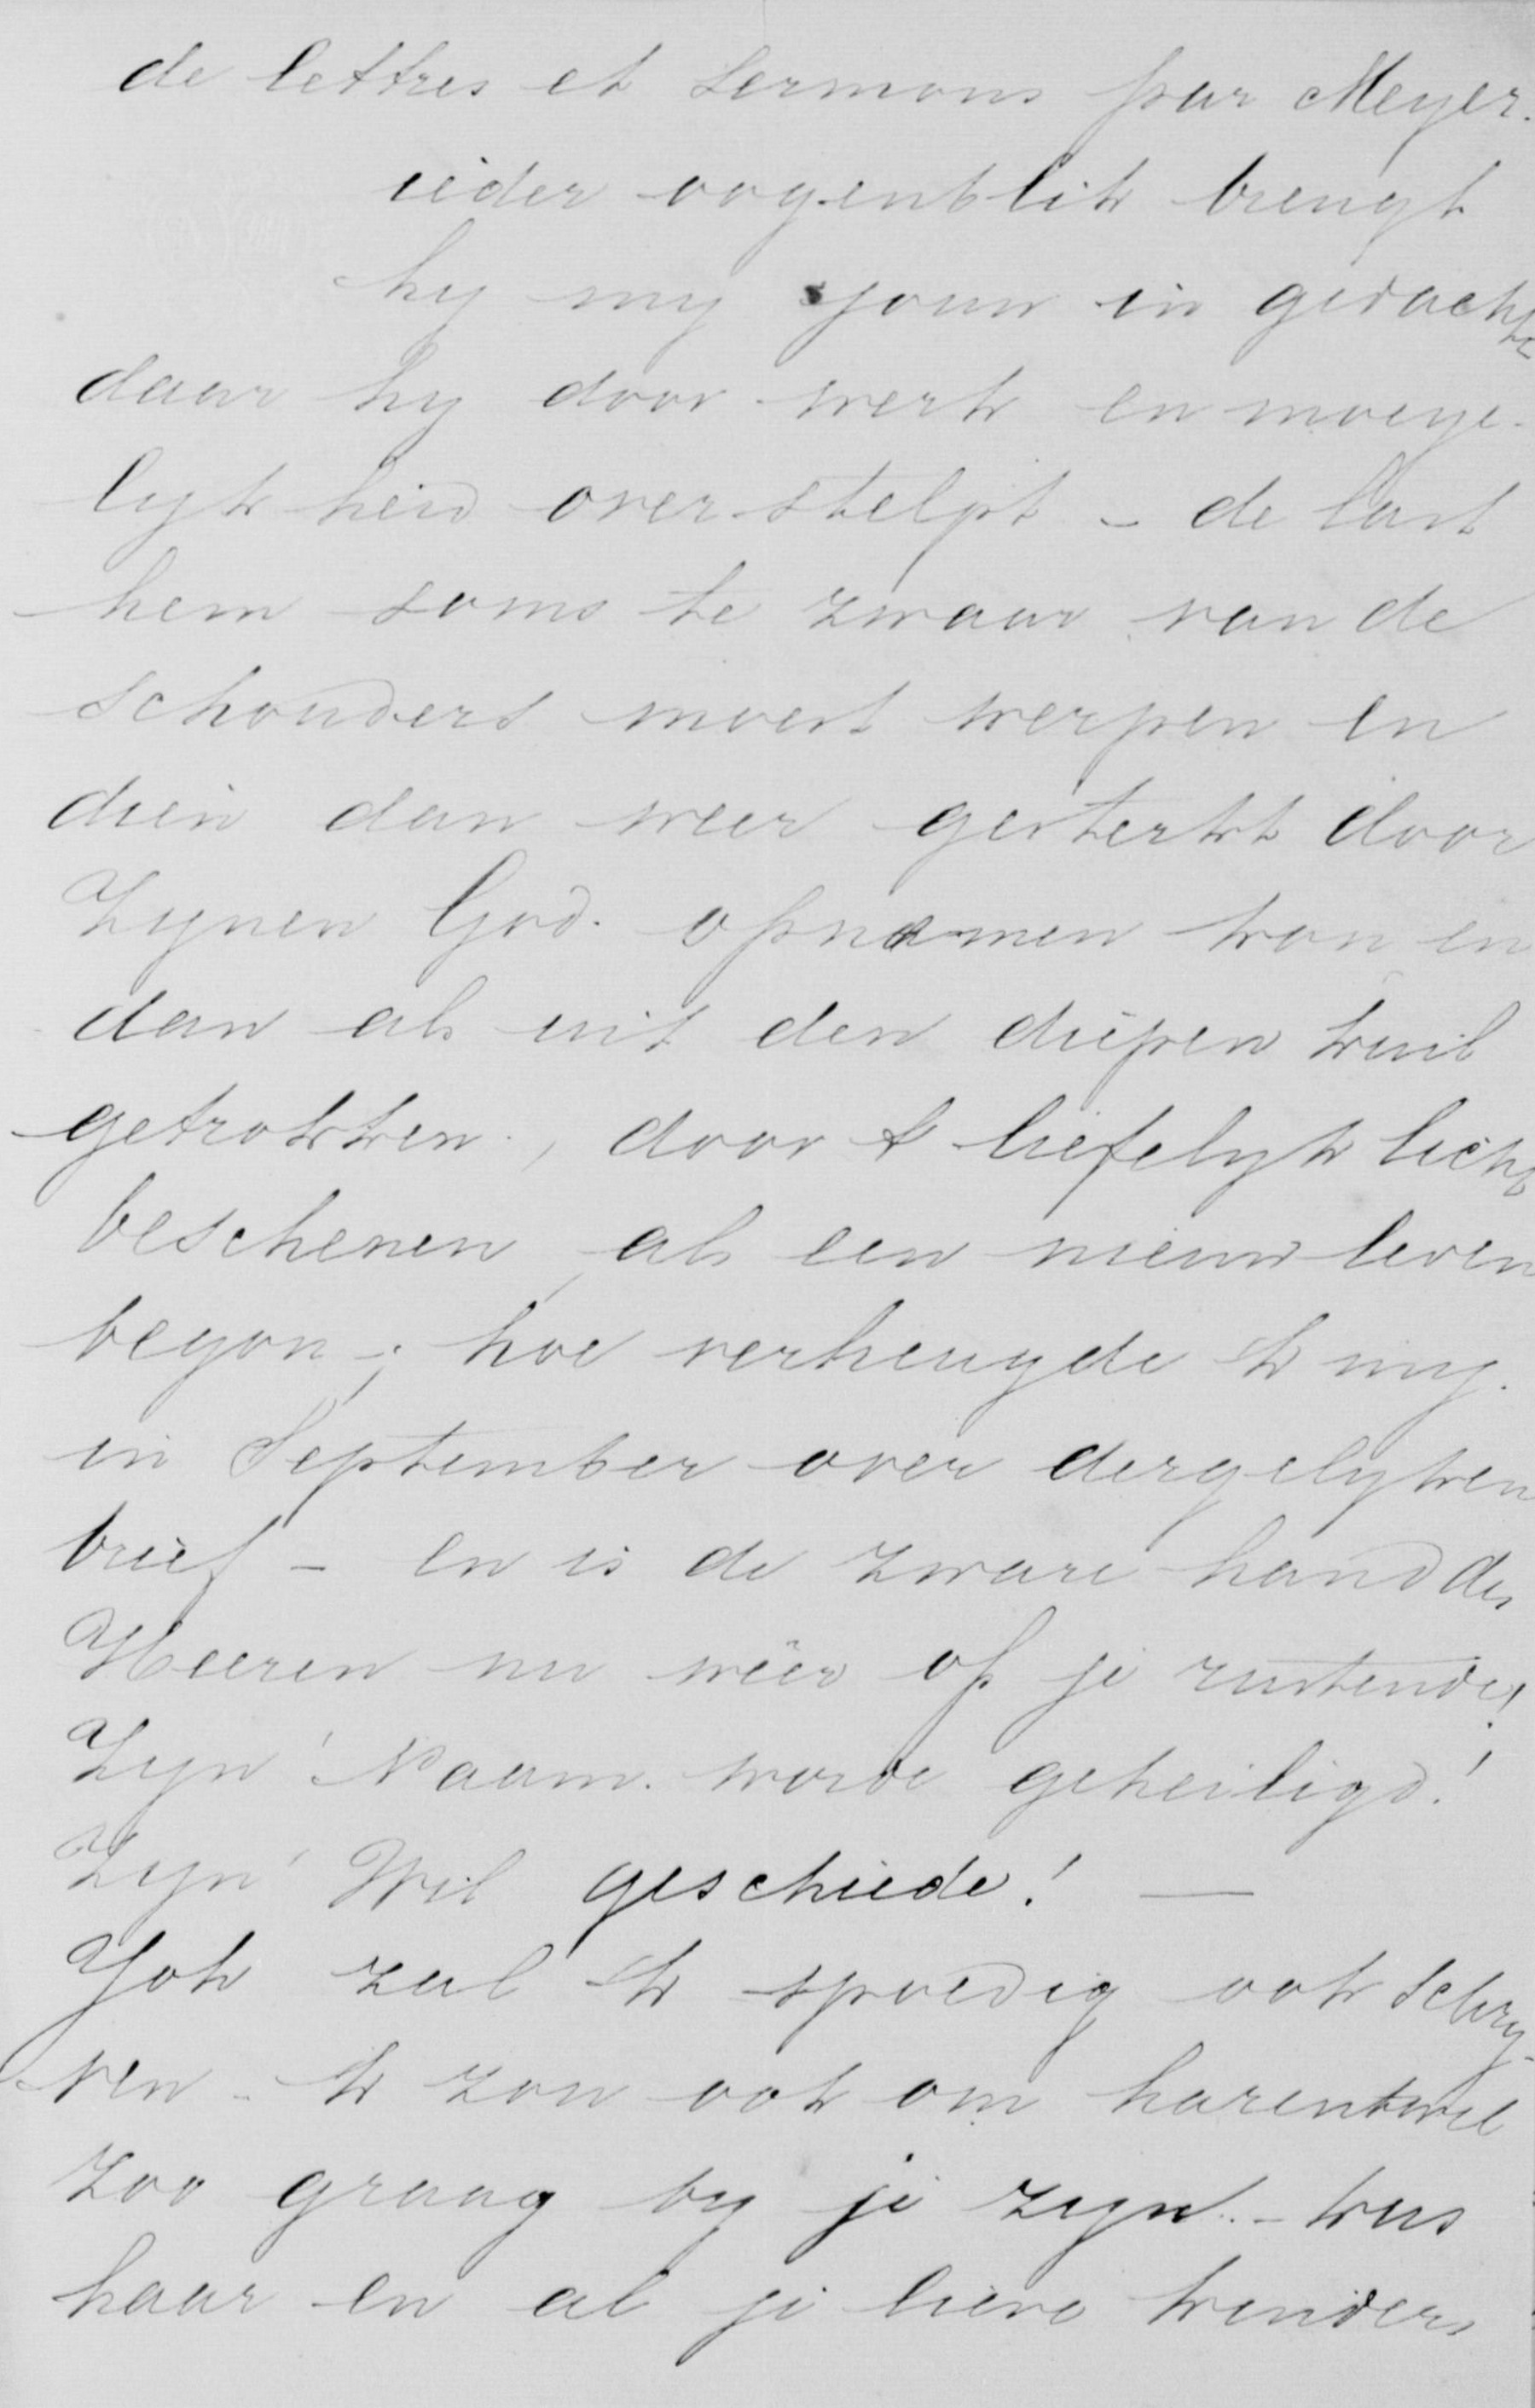 de lettres et sermons par Meyer.
ieder oogenblik brengt
hy my jouw in gedachte
daar hy door werk en moeye-
lykheid overstelpt – de last
hem soms te zwaar van de
schouders moest werpen en
dien dan weer gesterkt door
Zynen God. opnemen kon en
dan als uit den diepen kuil
getrokken, door 't liefelyk licht
beschenen, als een nieuw leven
begon –; hoe verheugde ik my.
in September over dergelyken
brief – en is de zware hand des
Heeren nu wéér op je rustende!
Zyn' Naam. worde geheiligd!
Zyn' Wil geschiede! —
Joh zal ik spoedig ook schry-
ven – ik zou ook om harentwil
zoo graag by je zyn. – kus
haar en al je lieve kinders